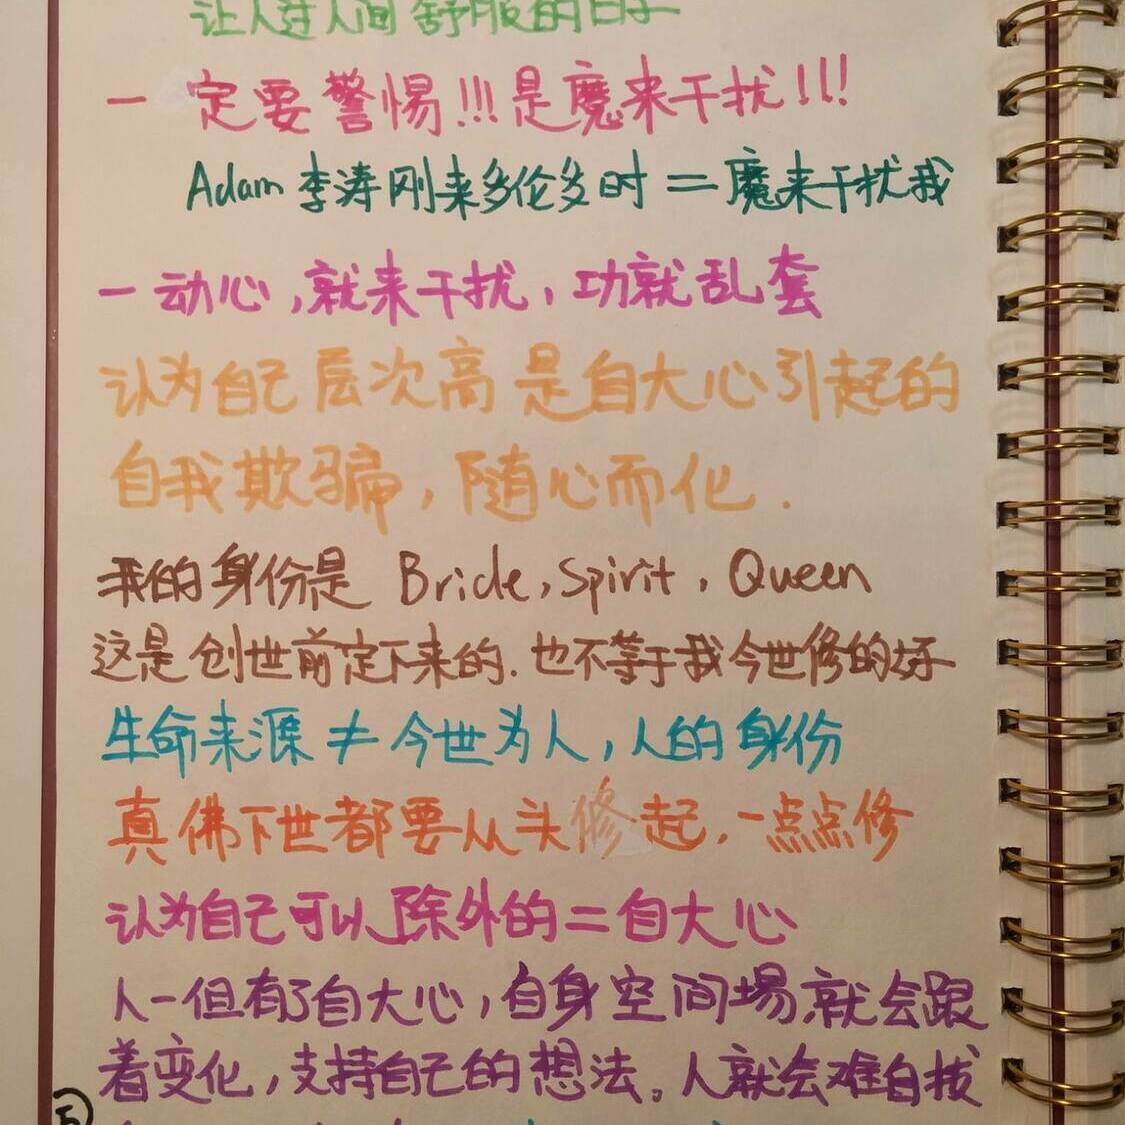 让人过人间舒服的日子
一定要警惕!!!是魔来干扰!!!
Adam 李涛刚来多伦多时 = 魔来干扰我
一动心,就来干扰,功就乱套
认为自己层次高是自大心引起的
自我欺骗,随心而化.
我的身份是 Bride, Spirit, Queen
这是创世前定下来的.也不等于我今世修的好
生命来源 ≠ 今世为人,人的身份
真佛下世都要从头修起,一点点修
认为自己可以除外的=自大心
人一但有了自大心,自身空间场就会跟
着变化,支持自己的想法。人就会难自拔
5